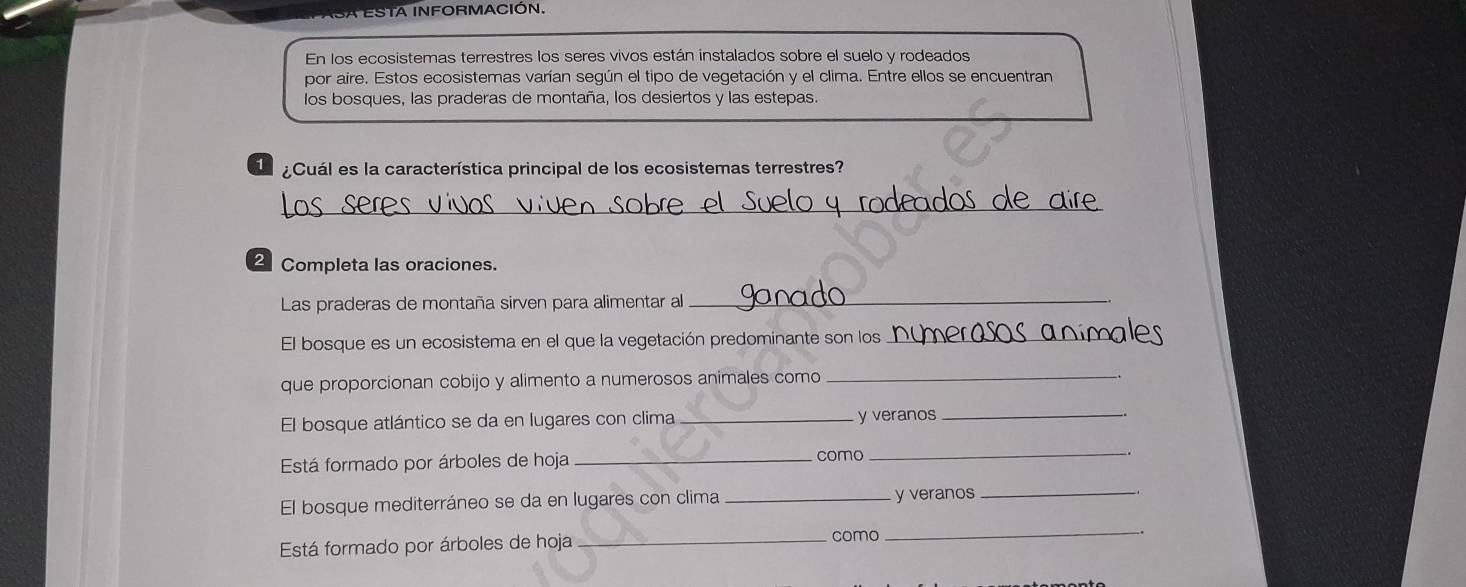 ESTA INFORMACIÓN.
En los ecosistemas terrestres los seres vivos están instalados sobre el suelo y rodeados
por aire. Estos ecosistemas varían según el tipo de vegetación y el clima. Entre ellos se encuentran
los bosques, las praderas de montaña, los desiertos y las estepas.
1 ¿Cuál es la característica principal de los ecosistemas terrestres?
Los seres vivos viven sobre el suelo y rodeados de aire
2 Completa las oraciones.
Las praderas de montaña sirven para alimentar al ganado.
El bosque es un ecosistema en el que la vegetación predominante son los numerosos animales
que proporcionan cobijo y alimento a numerosos animales como ______.
El bosque atlántico se da en lugares con clima ______ y veranos ______.
Está formado por árboles de hoja ______ como ______.
El bosque mediterráneo se da en lugares con clima ______ y veranos ______.
Está formado por árboles de hoja ______ como ______.